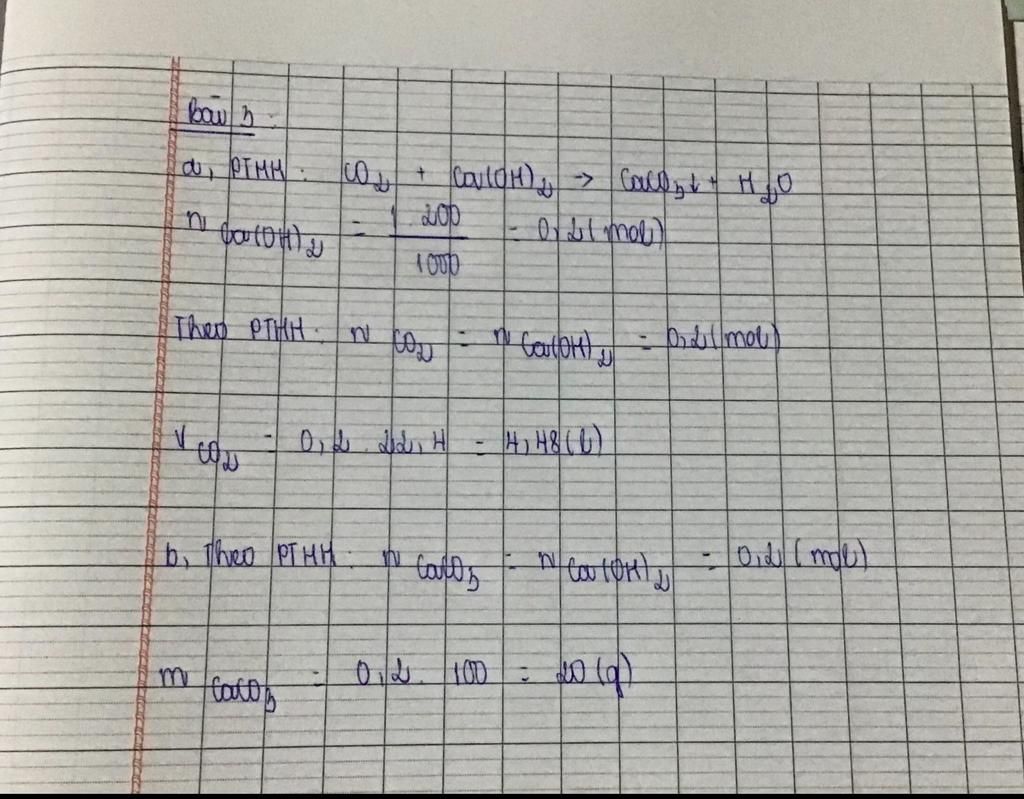 Bài 3:
a, PTHH: CO2 + Ca(OH)2 → CaCO3↓ + H2O
n Ca(OH)2 = 1.200/1000 = 0,2 (mol)
Theo PTHH: n CO2 = n Ca(OH)2 = 0,2 (mol)
V CO2 = 0,2 . 22,4 = 4,48 (l)
b, Theo PTHH: n CaCO3 = n Ca(OH)2 = 0,2 (mol)
m CaCO3 = 0,2 . 100 = 20 (g)